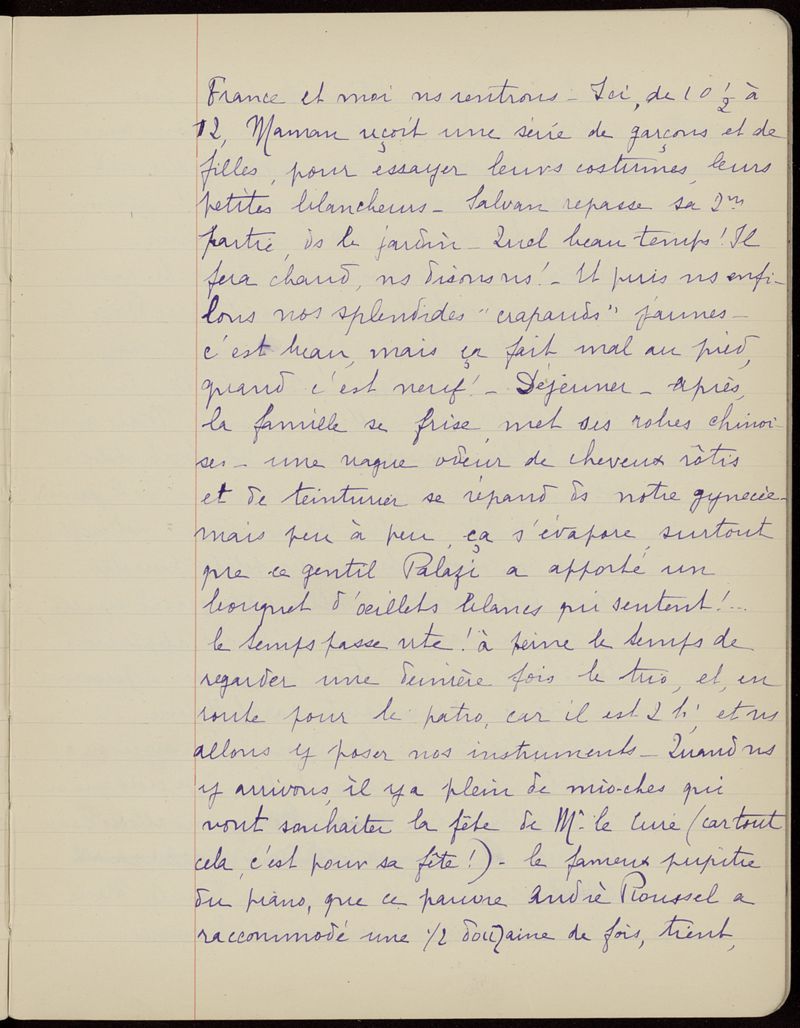 France et moi ns rentrons – Ici, de 10 1/2 à
12, Maman reçoit une série de garçons et de
filles, pour essayer leurs costumes, leurs
petites blancheurs – Salvan repasse sa 2me
partie, ds le jardin – Quel beau temps! Il
fera chaud, ns disons ns! – Et puis ns enfi-
lons nos splendides "crapauds" jaunes –
c'est beau, mais ça fait mal au pied,
quand c'est neuf! – Déjeuner – après,
la famille se frise, met ses robes chinoi-
ses – une vague odeur de cheveux rôtis
et de teinturier se répand ds notre gynécée –
mais peu à peu, ça s'évapore, surtout
que ce gentil Palazi a apporté un
bouquet d'œillets blancs qui sentent!...
le temps passe vite! à peine le temps de
regarder une dernière fois le trio, et, en
route pour le patro, car il est 2 h, et ns
allons y poser nos instruments – Quand ns
y arrivons, il y a plein de mioches qui
vont souhaiter la fête de Mr le Curé (car tout
cela, c'est pour sa fête!) – le fameux pupitre
du piano, que ce pauvre André Roussel a
raccommodé une 1/2 douzaine de fois, tient,